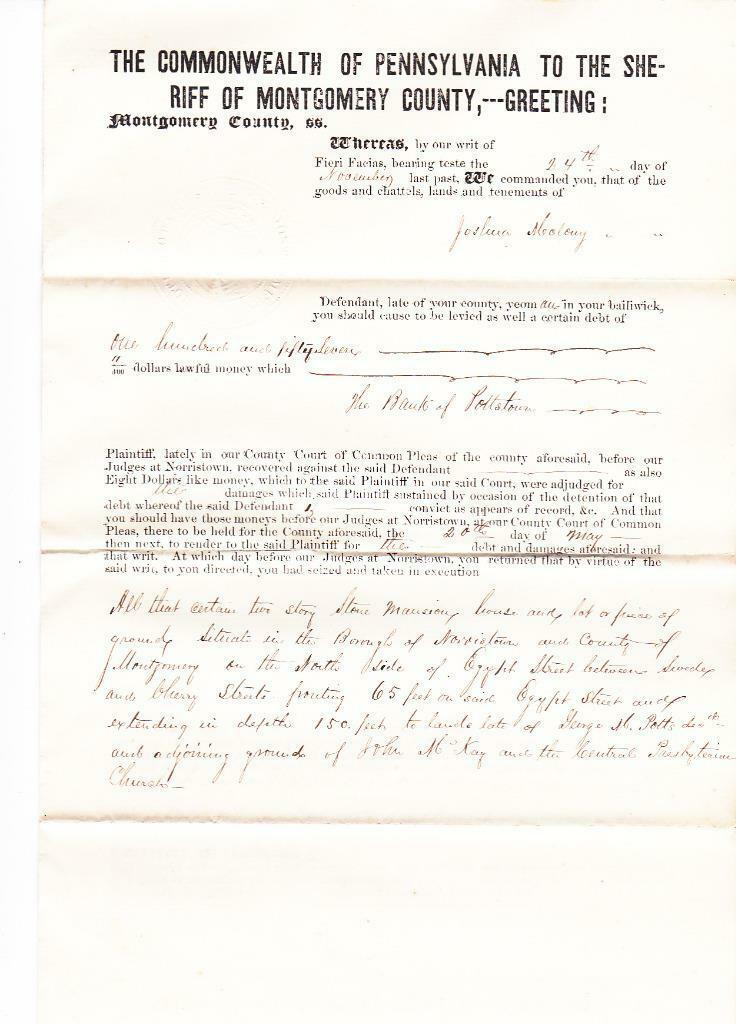 THE COMMONWEALTH OF PENNSYLVANIA TO THE SHE-
RIFF OF MONTGOMERY COUNTY,---GREETING:
Montgomery County, ss.
Whereas, by our writ of
Fieri Facias, bearing teste the 24th day of
November last past, We commanded you, that of the
goods and chattels, lands and tenements of
Joshua
Defendant, late of your county, yeoman in your bailiwick,
you should cause to be levied as well a certain debt of
One hundred and fifty seven
11/100 dollars lawful money which
The Bank of Pottstown
Plaintiff, lately in our County Court of Common Pleas of the county aforesaid, before our
Judges at Norristown, recovered against the said Defendant as also
Eight Dollars like money, which to the said Plaintiff in our said Court, were adjudged for
the damages which said Plaintiff sustained by occasion of the detention of that
debt whereof the said Defendant is convict as appears of record, &c. And that
you should have those moneys before our Judges at Norristown, at our County Court of Common
Pleas, there to be held for the County aforesaid, the 20th day of May
then next, to render to the said Plaintiff for the debt and damages aforesaid: and
that writ. At which day before our Judges at Norristown, you returned that by virtue of the
said writ, to you directed, you had seized and taken in execution
All that certain two story Stone Mansion house and lot or piece of
ground Situate in the Borough of Norristown and County of
Montgomery on the North side of Egypt Street between Swede
and Cherry Streets fronting 65 feet on said Egypt Street and
extending in depth 150 feet to lands late of George M. Potts decd
and adjoining grounds of John McKay and the Central Presbyterian
Church